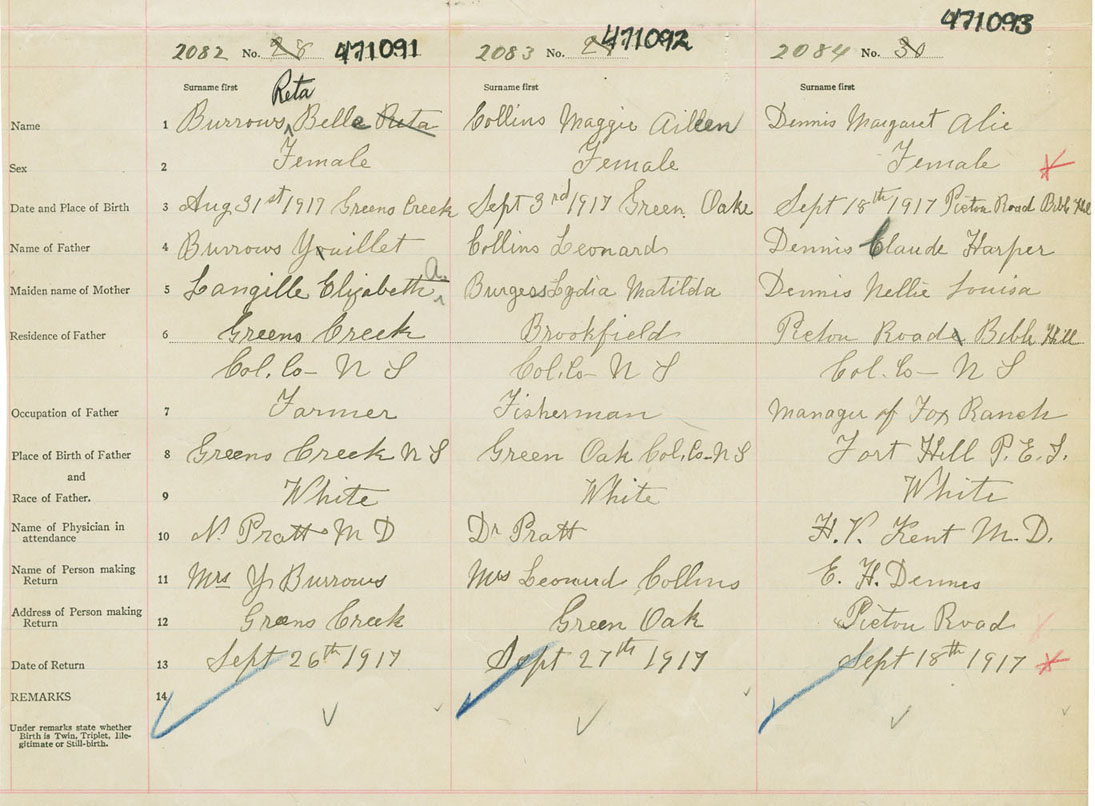 471093
2082 No. 28 471091 2083 No. 29 471092 2084 No. 30
Surname first Surname first Surname first
Reta
Name 1 Burrows Bella Reta Collins Maggie Aileen Dennis Margaret Alie
Sex 2 Female Female Female
Date and Place of Birth 3 Aug 31st 1917 Greens Creek Sept 3rd 1917 Green Oake Sept 18th 1917 Picton Road Bible Hill
Name of Father 4 Burrows Collins Leonard Dennis Claude Harper
Maiden name of Mother 5 Langille Elizabeth Burgess Lydia Matilda Dennis Nellie Louisa
Residence of Father 6 Greens Creek Brookfield Picton Road Bible Hill
Col. Co– N S Col. Co– N S Col. Co– N S
Occupation of Father 7 Farmer Fisherman Manager of Fox Ranch
Place of Birth of Father 8 Greens Creek N S Green Oak Col. Co–N S Fort Hill P. E. I.
and
Race of Father. 9 White White White
Name of Physician in
attendance 10 N. Pratt M D Dr Pratt H. V. Kent M. D.
Name of Person making
Return 11 Mrs Y Burrows Mrs Leonard Collins E. H. Dennis
Address of Person making
Return 12 Greens Creek Green Oak Picton Road
Date of Return 13 Sept 26th 1917 Sept 27th 1917 Sept 18th 1917
REMARKS 14
Under remarks state whether
Birth is Twin, Triplet, Ille-
gitimate or Still-birth.